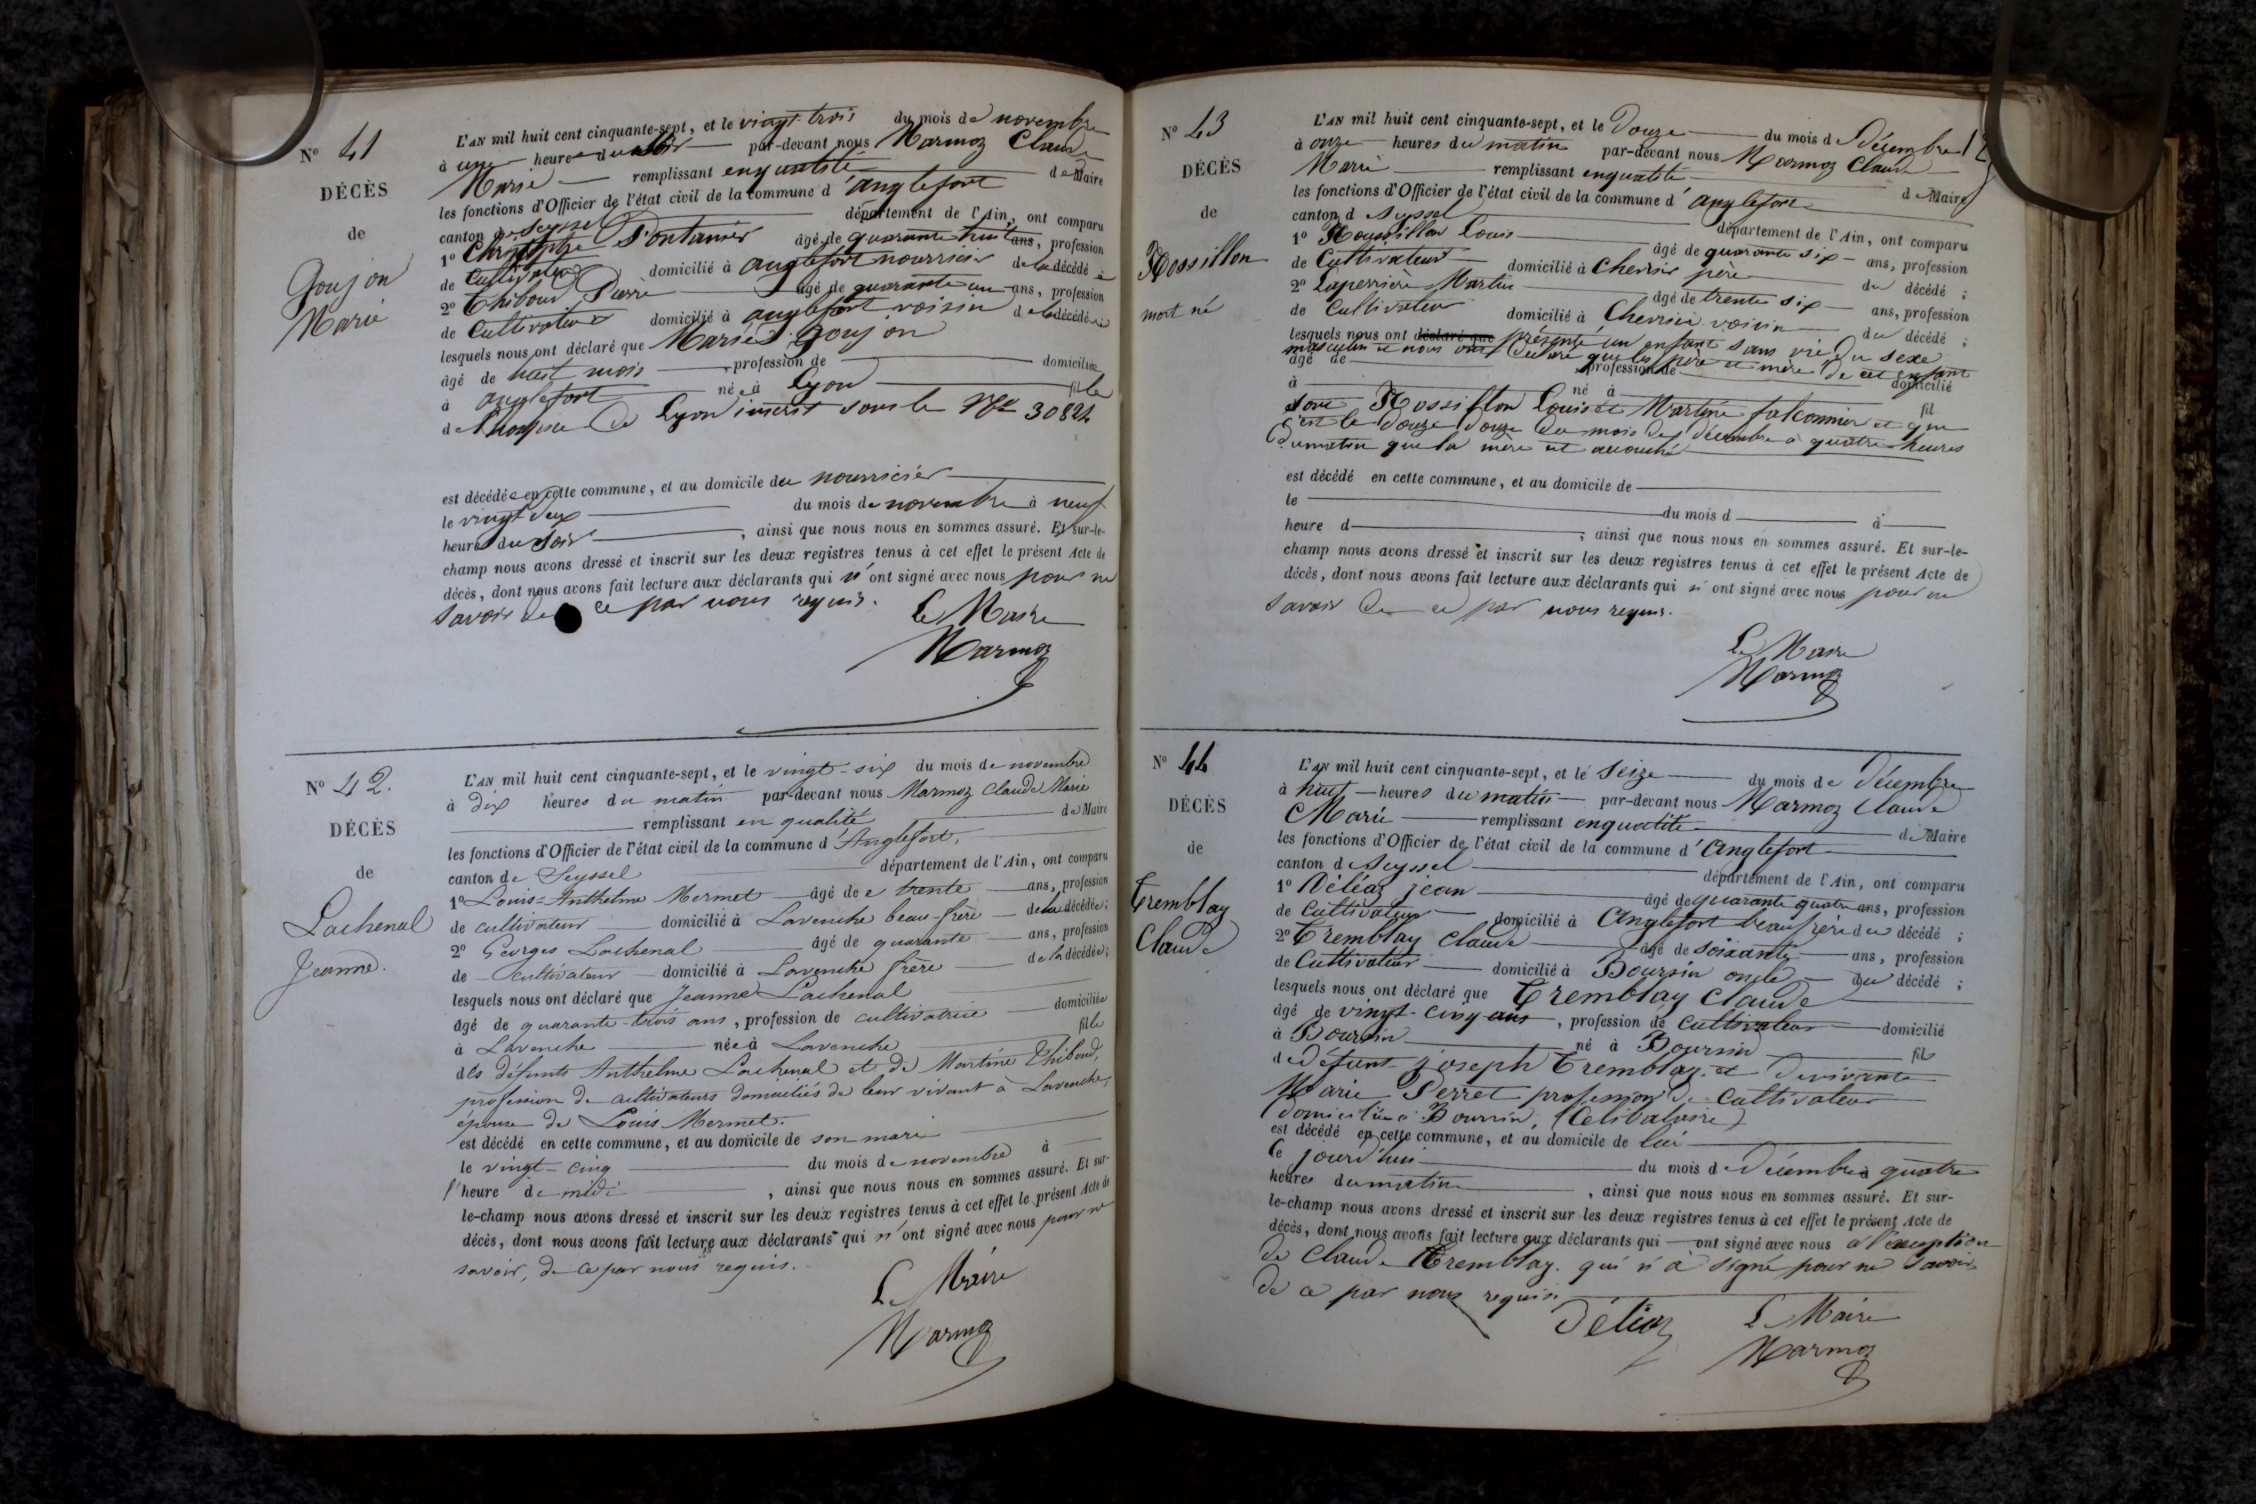 N° 41
DÉCÈS
de
Goujon
Marie
L'AN mil huit cent cinquante-sept, et le vingt trois du mois de novembre
à une heure du soir par-devant nous Marmoz Claude
Marie remplissant en qualité de Maire
les fonctions d'Officier de l'état civil de la commune d'anglefort
canton de Seyssel département de l'Ain, ont comparu
1° Christophe âgé de quarante huit ans, profession
de Cultivateur domicilié à anglefort nourricier de la décédée
2° Thiboud Pierre âgé de quarante un ans, profession
de Cultivateur domicilié à anglefort voisin de la décédée
lesquels nous ont déclaré que Marie Goujon
âgé de huit mois profession de domiciliée
à anglefort née à Lyon fille
de l'hospice de Lyon inscrit sous le N° 30824
est décédée en cette commune, et au domicile du nourricier
le vingt deux du mois de novembre à neuf
heures du soir, ainsi que nous nous en sommes assuré. Et sur-le-
champ nous avons dressé et inscrit sur les deux registres tenus à cet effet le présent Acte de
décès, dont nous avons fait lecture aux déclarants qui n'ont signé avec nous pour ne
savoir de ce par nous requis.
Le Maire
Marmoz
N° 42.
DÉCÈS
de
Lachenal
Jeanne.
L'AN mil huit cent cinquante-sept, et le vingt-six du mois de novembre
à dix heures du matin par-devant nous Marmoz Claude Marie
remplissant en qualité de Maire
les fonctions d'Officier de l'état civil de la commune d'Anglefort,
canton de Seyssel département de l'Ain, ont comparu
1° Louis-Anthelme Mermet âgé de trente ans, profession
de cultivateur domicilié à Lavenche beau-frère de la décédée;
2° Georges Lachenal âgé de quarante ans, profession
de cultivateur domicilié à Lavenche frère de la décédée;
lesquels nous ont déclaré que Jeanne Lachenal
âgé de quarante-trois ans, profession de cultivatrice domiciliée
à Lavenche née à Lavenche fille
des défunts Anthelme Lachenal et de Martine Thiboud,
profession de cultivateurs domiciliés de leur vivant à Lavenche,
épouse de Louis Mermet.
est décédé en cette commune, et au domicile de son mari
le vingt-cinq du mois de novembre à
l'heure de midi, ainsi que nous nous en sommes assuré. Et sur-
le-champ nous avons dressé et inscrit sur les deux registres tenus à cet effet le présent Acte de
décès, dont nous avons fait lecture aux déclarants qui n'ont signé avec nous pour ne
savoir, de ce par nous requis.
Le Maire
Marmoz
N° 43
DÉCÈS
de
Rossillon
mort né
L'AN mil huit cent cinquante-sept, et le Douze du mois de Décembre
à onze heures du matin par-devant nous Marmoz Claude
Marie remplissant en qualité de Maire
les fonctions d'Officier de l'état civil de la commune d'anglefort
canton d Seyssel département de l'Ain, ont comparu
1° Rossillon Louis âgé de quarante six ans, profession
de Cultivateur domicilié à Chevrier père du décédé;
2° Laperrière Martin âgé de trente six ans, profession
de Cultivateur domicilié à Chevrier voisin du décédé;
lesquels nous ont déclaré que présenté un enfant sans vie du sexe
masculin et nous ont déclaré que les père et mère de cet enfant
âgé de profession de domicilié
à né à fil
sont Rossillon Louis et Martine falconnier et que
c'est le douze du mois de décembre à quatre heures
du matin que la mère est accouché
est décédé en cette commune, et au domicile de
le du mois d à
heure d, ainsi que nous nous en sommes assuré. Et sur-le-
champ nous avons dressé et inscrit sur les deux registres tenus à cet effet le présent Acte de
décès, dont nous avons fait lecture aux déclarants qui n'ont signé avec nous pour ne
savoir de ce par nous requis.
Le Maire
Marmoz
N° 44
DÉCÈS
de
Tremblay
Claude
L'AN mil huit cent cinquante-sept, et le seize du mois de décembre
à huit heures du matin par-devant nous Marmoz Claude
Marie remplissant en qualité de Maire
les fonctions d'Officier de l'état civil de la commune d'Anglefort
canton d Seyssel département de l'Ain, ont comparu
1° Déléaz jean âgé de quarante quatre ans, profession
de Cultivateur domicilié à Anglefort beaufrère du décédé;
2° Tremblay Claude âgé de soixante ans, profession
de Cultivateur domicilié à Boursin oncle du décédé;
lesquels nous ont déclaré que Tremblay Claude
âgé de vingt-cinq ans, profession de Cultivateur domicilié
à Boursin né à Boursin fils
de défunt joseph Tremblay et de vivante
Marie Perret profession de Cultivateur
domiciliée à Boursin, (Célibataire)
est décédé en cette commune, et au domicile de lui
le jourd'hui du mois de décembre à quatre
heures du matin, ainsi que nous nous en sommes assuré. Et sur-
le-champ nous avons dressé et inscrit sur les deux registres tenus à cet effet le présent Acte de
décès, dont nous avons fait lecture aux déclarants qui ont signé avec nous à l'exception
de Claude Tremblay. qui n'a signé pour ne savoir
de ce par nous requis
Déléaz Le Maire
Marmoz